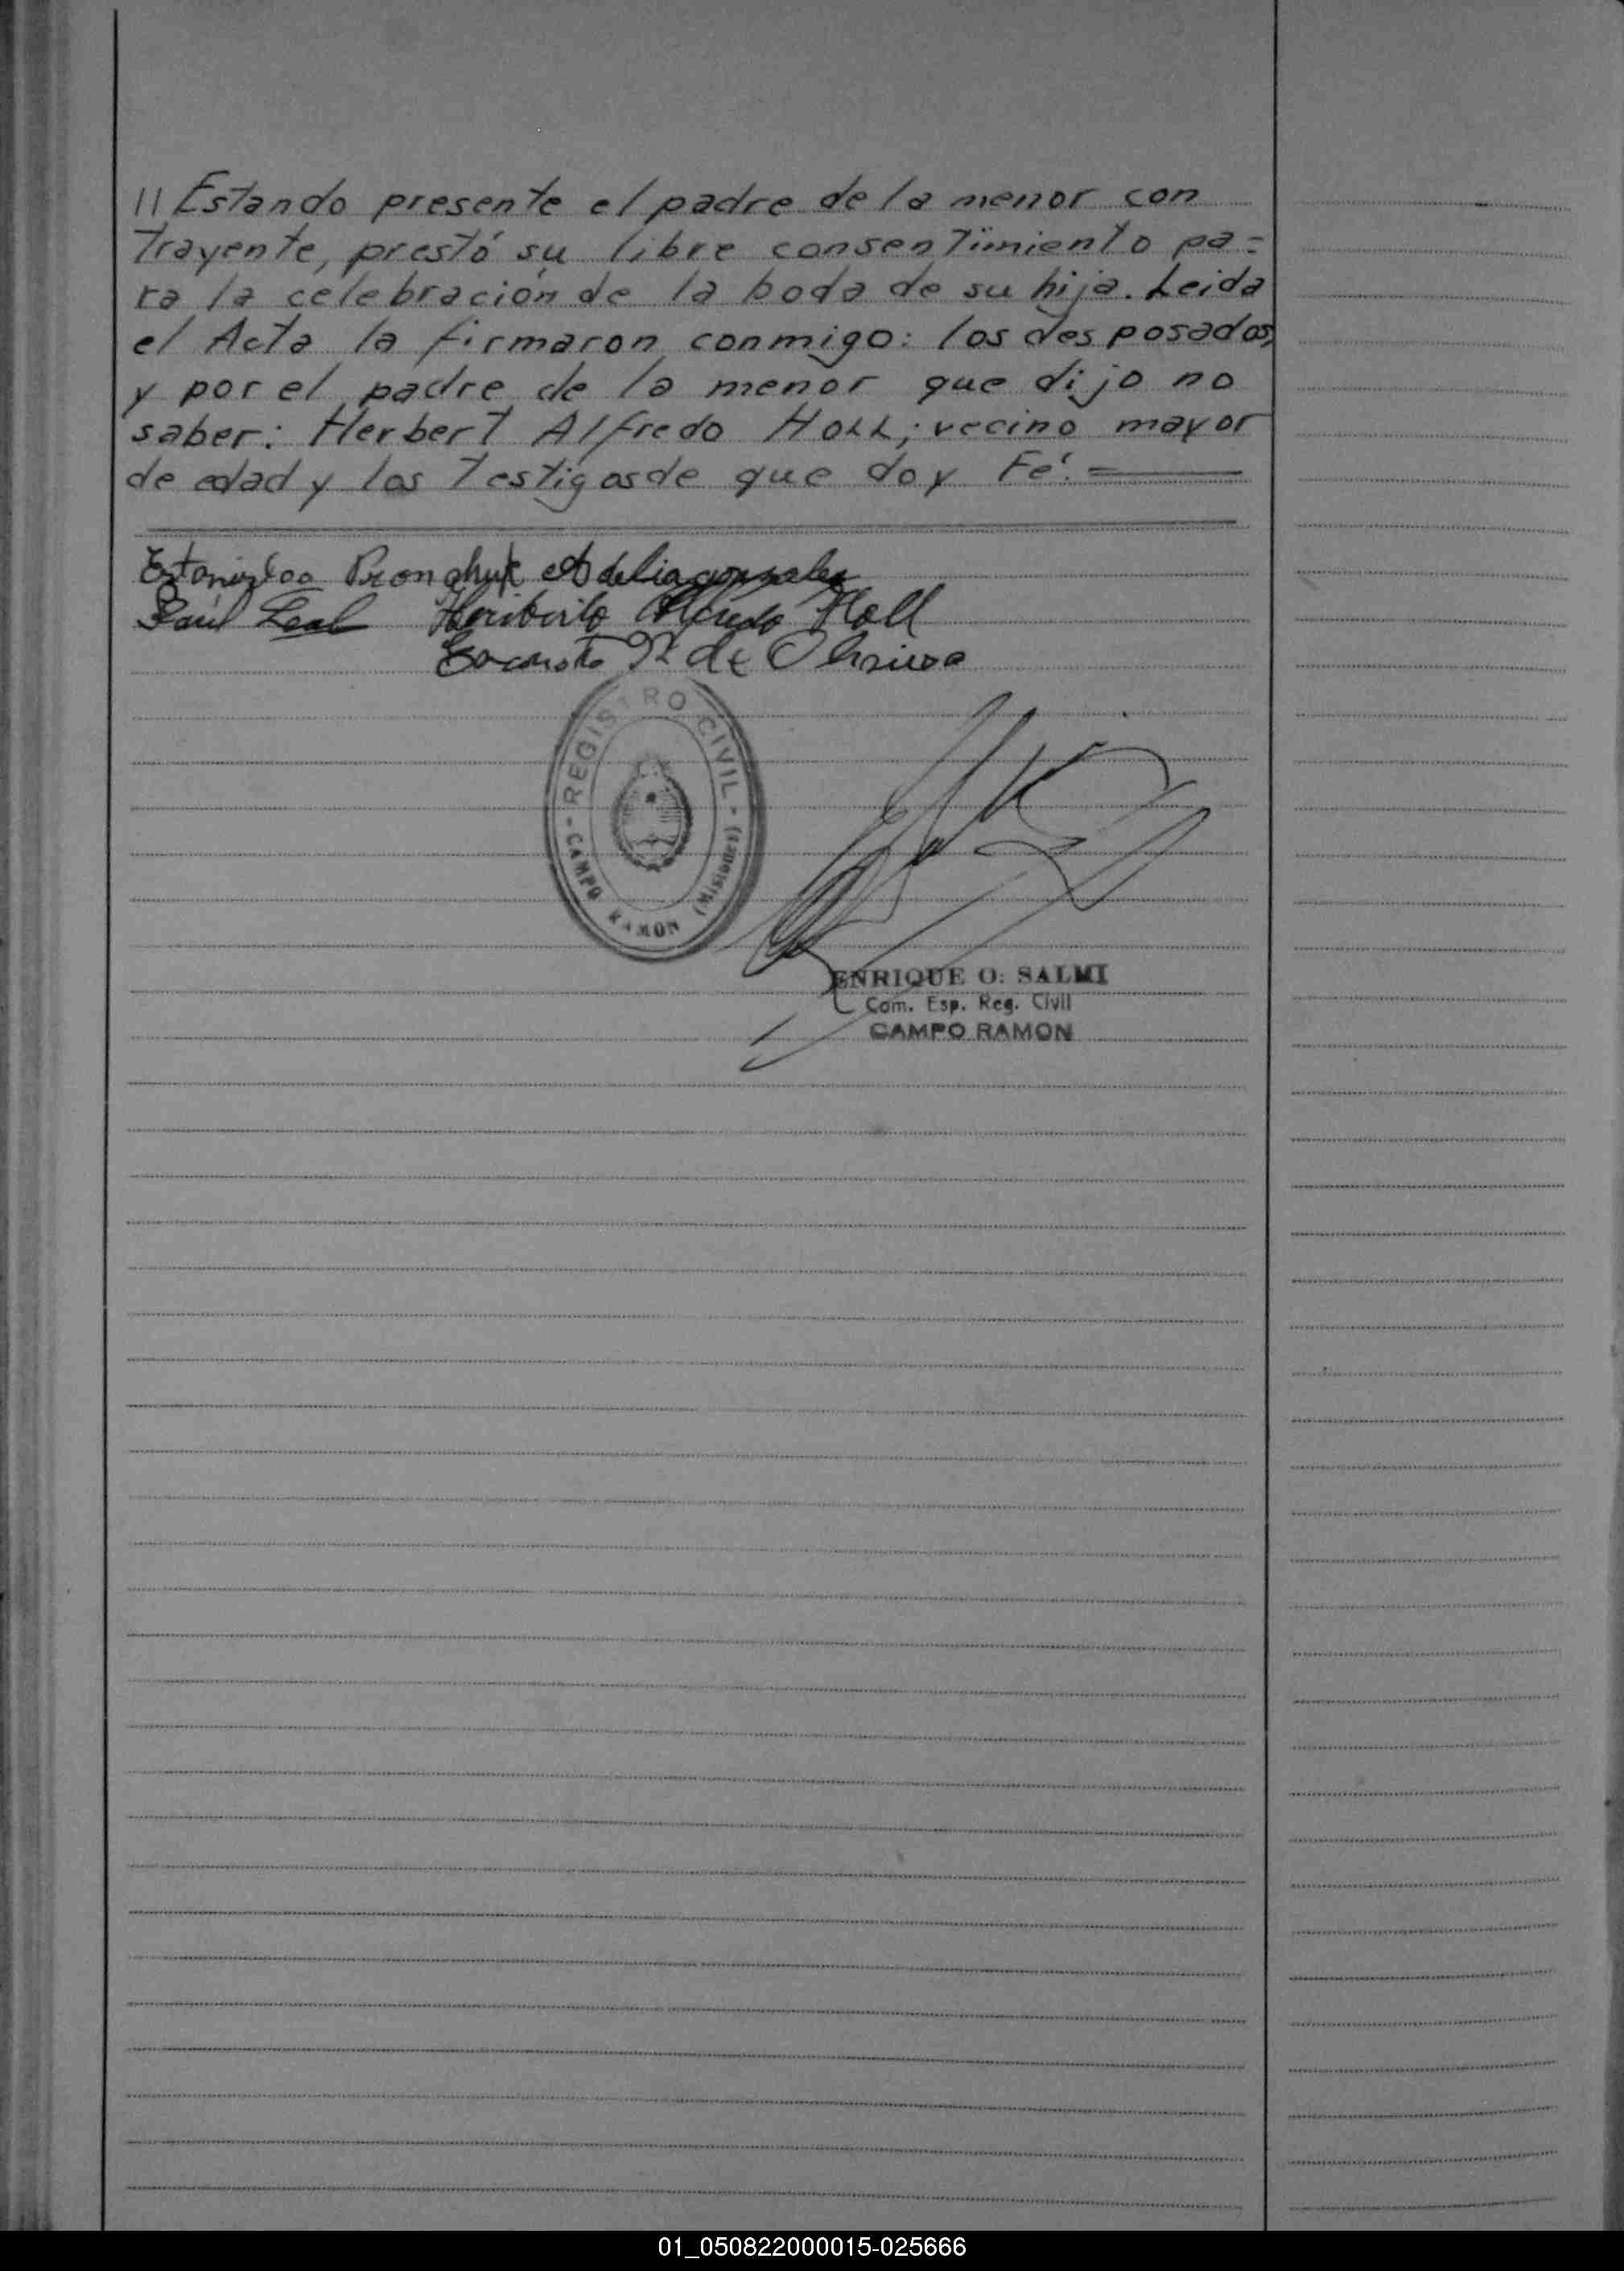 11 Estando presente el padre de la menor con
trayente, prestó su libre consentimiento pa=
ra la celebración de la boda de su hija. Leida
el Acta la firmaron conmigo: los desposados,
y por el padre de la menor que dijo no
saber: Herbert Alfredo Holl; vecino mayor
de edad y los Testigos de que doy Fé. =
Estanislao Adelia gonzalez
Raúl Leal Heriberto Alfredo Holl
de Oliveira
- REGISTRO CIVIL -
CAMPO RAMON (Misiones)
ENRIQUE O. SALMI
Com. Esp. Reg. Civil
CAMPO RAMON
01_050822000015-025666